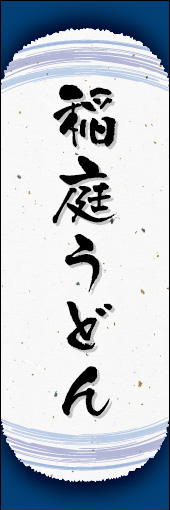 稲庭うどん